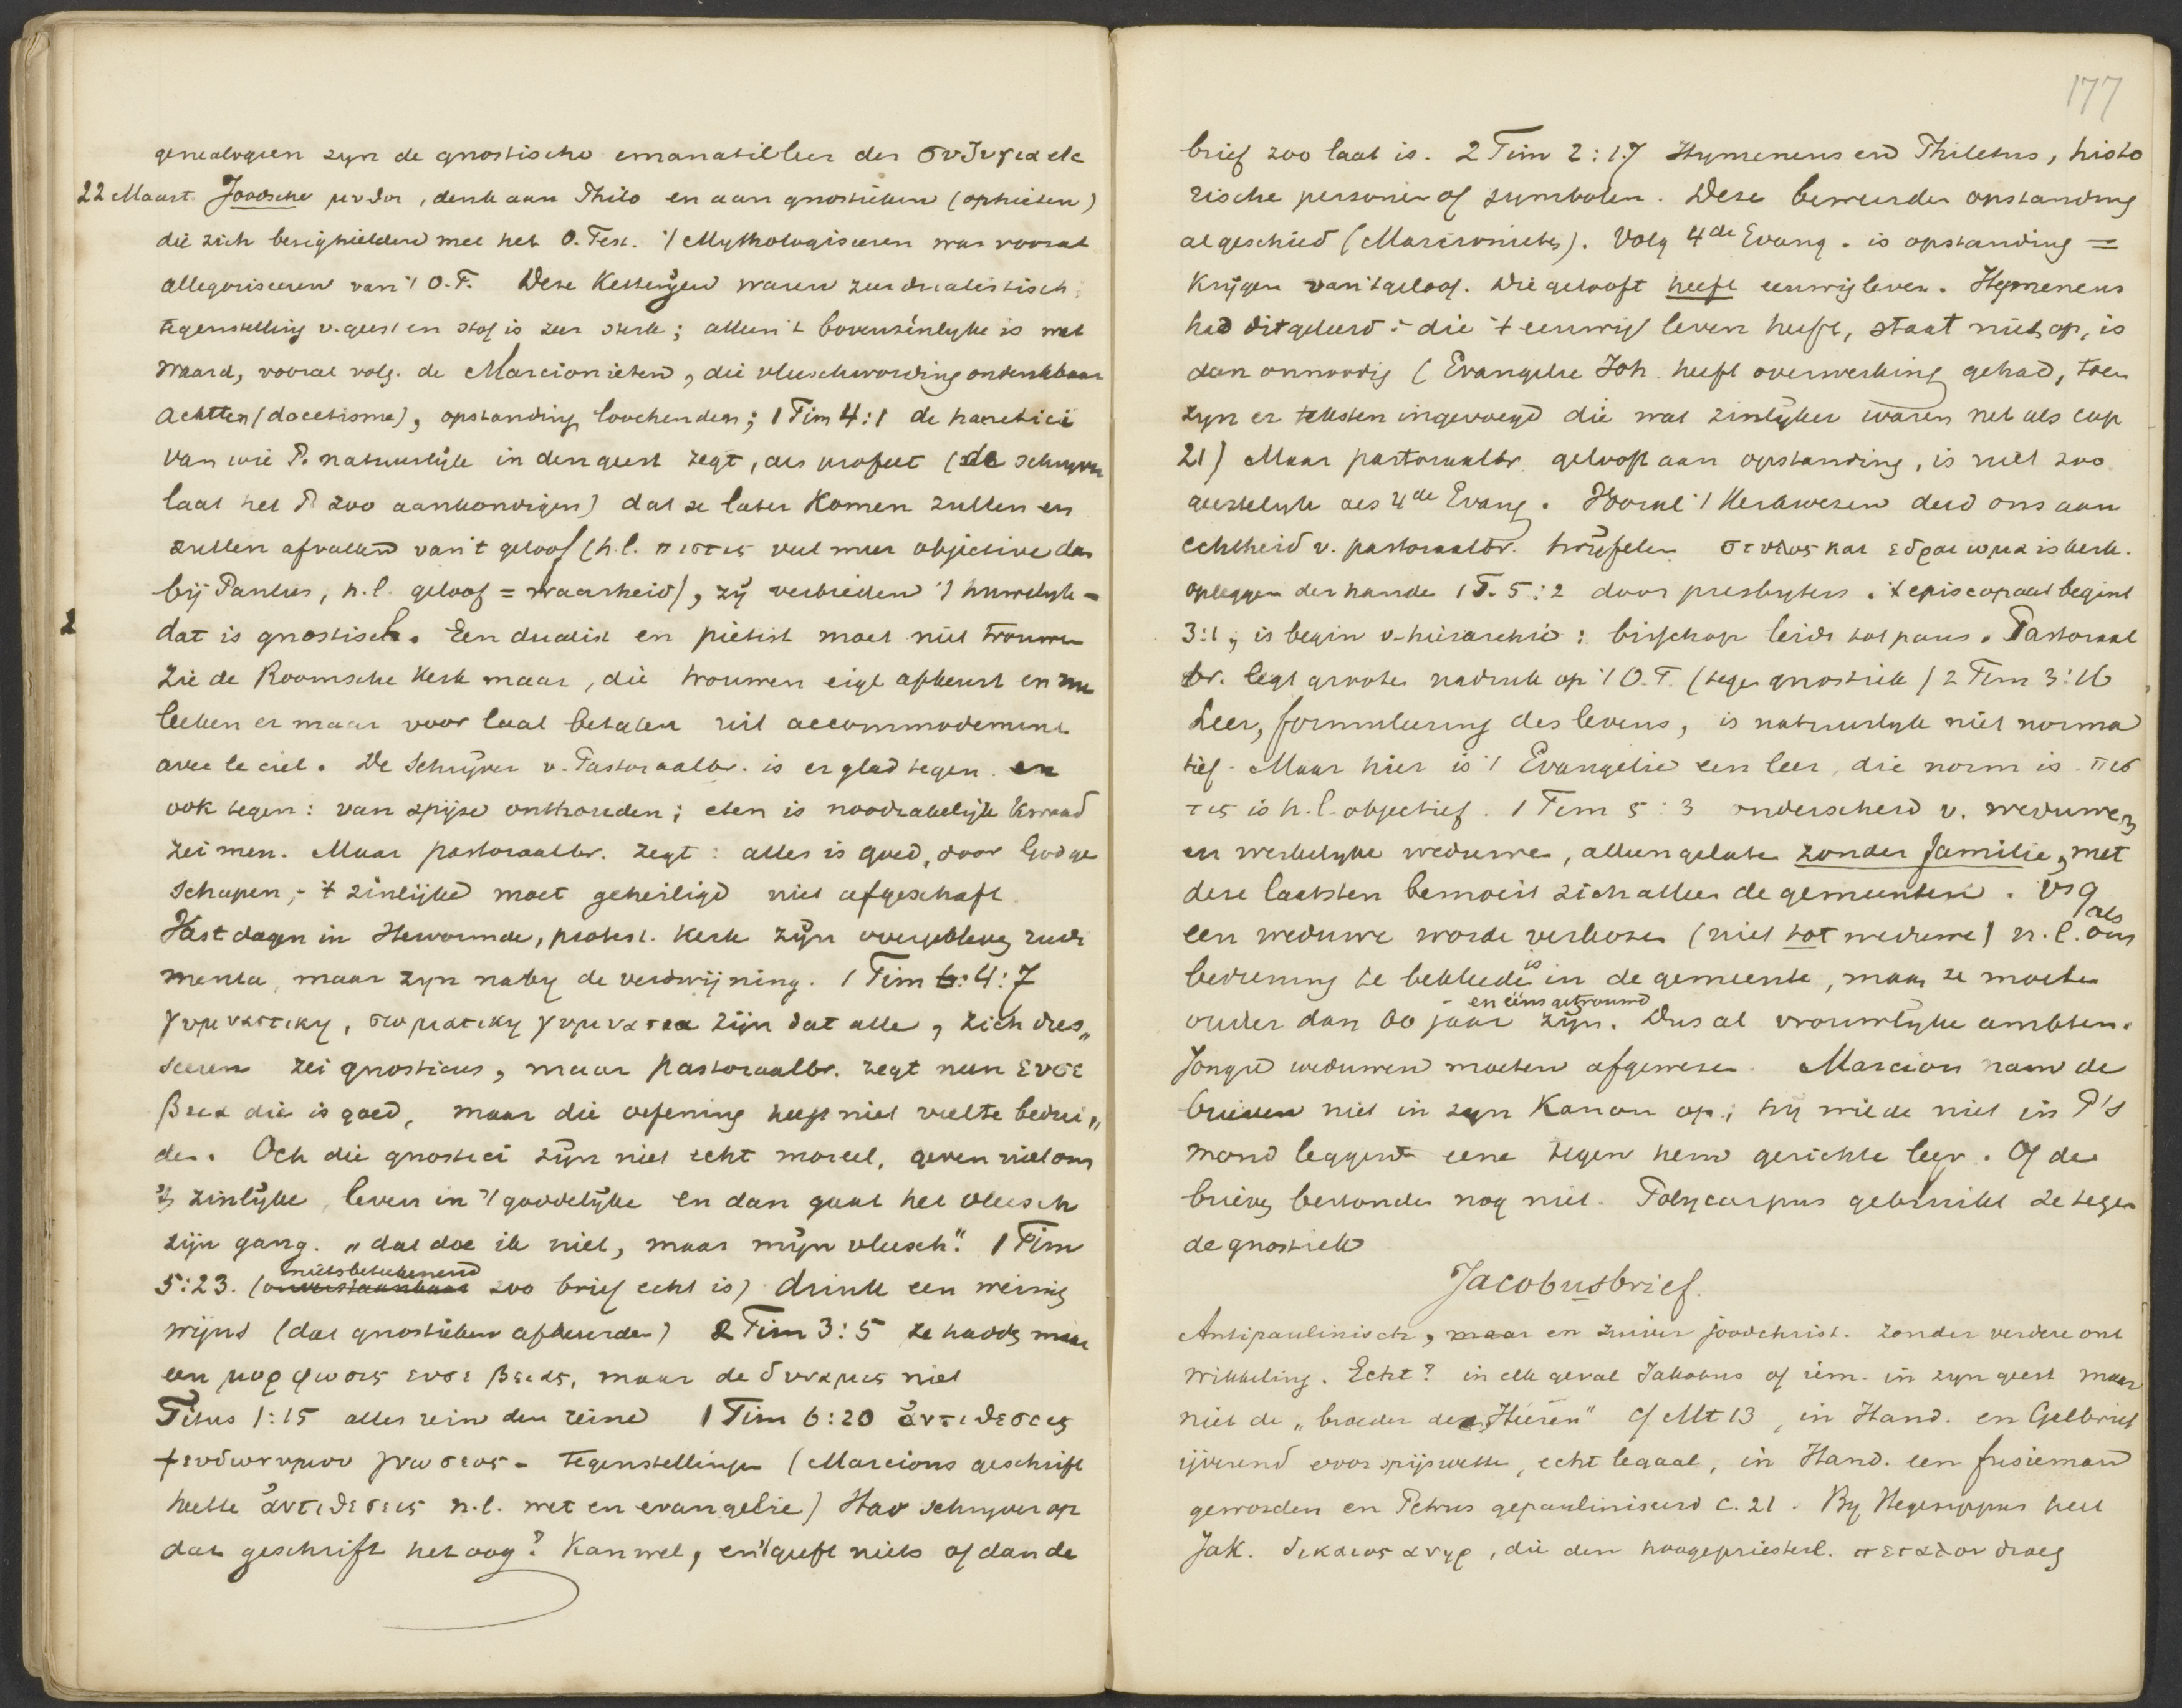 genealogien zyn de gnostische emanatieleer der συζυγια etc
22 Maart Joodsche μυθοι, denk aan Philo en aan gnostieken (ophieten)
die zich bezighielden met het O. Test. 't Mythologiseeren was vooral
allegoriseeren van 't O.T. Deze Ketterijen waren zeer dualistisch
tegenstelling v. geest en stof is zeer sterk; alleen 't bovenzinlyke is wat
waard, vooral volg. de Marcionieten, die vleeschwording ondenkbaar
achtten (docetisme), opstanding loochenden; 1 Tim 4:1 de haeretici
van wie P. natuurlijk in den geest zegt, als profeet (de schryver
laat het P zoo aankondigen) dat ze later Komen zullen en
zullen afvallen van 't geloof (h.l. πιστις veel meer objective dan
bij Paulus, h.l. geloof = waarheid), zij verbieden 't huwelyk -
2 dat is gnostisch. Een dualist en piëtist moet niet trouwen
Zie de Roomsche Kerk maar, die trouwen eigl afkeurt en nu
leeken er maar voor laat betalen uit accommodement
avec le ciel. De Schrijver v. Pastoraalbr. is er glad tegen. en
ook tegen: van spijze onthouden; eten is noodzakelijk kwaad
zei men. Maar pastoraalbr. zegt: alles is goed, door God ge
schapen, - 't zinlijke moet geheiligd niet afgeschaft.
Vastdagen in Hervormde, protest. Kerk zijn overgebleven rudi
menta, maar zyn naby de verdwijning. 1 Tim 4:7
γυμναστικη, σωματικη γυμνασια zijn dat alle, zich dres„
seeren zei gnosticus, maar Pastoraalbr. zegt neen ευσε
βεια die is goed, maar die oefening heeft niet veel te bedui„
den. Och die gnostici zijn niet echt moreel, geven niet om
't zinlijke, leven in 't goddelijke en dan gaat het vleesch
zijn gang. „dat doe ik niet, maar mijn vleesch." 1 Tim
5:23. (onverstaanbaar nietsbeteekenend zoo brief echt is) drink een weinig
wijns (dat gnostieken afkeurden) 2 Tim 3:5 ze hadden maar
een μορφωσις ευσεβειας, maar de δυναμις niet
Titus 1:15 alles rein den reine 1 Tim 6:20 ἀντιθεσεις
ψευδωνυμου γνωσεως - tegenstellingen (Marcions geschrift
heette ἀντιθεσεις n.l. wet en evangelie) Had schryver op
dat geschrift het oog? Kan wel, en 't geeft niets of dan de
177
brief zoo laat is. 2 Tim 2:17 Hymeneus en Philetus, histo
rische personen of symbolen. Deze beweerden opstanding
al geschied (Marcionieten). Volg 4de Evang. is opstanding =
Krijgen van 't geloof. Wie gelooft heeft eeuwig leven. Hymeneus
had dit geleerd: die 't eeuwig leven heeft, staat niet op, is
dan onnoodig (Evangelie Joh. heeft overwerking gehad, toen
zyn er teksten ingevoegd die wat zinlijker waren net als cap
21) Maar pastoraalbr. gelooft aan opstanding, is niet zoo
geestelyk als 4de Evang. Vooral 't Kerkwezen deed ons aan
echtheid v. pastoraalbr. twijfelen. στυλος και εδραιωμα is kerk.
opleggen der hande 1 T. 5:2 door presbyters. 't episcopaat begint
3:1, is begin v. hierarchie: bisschop leidt tot paus. Pastoraal
br. legt groote nadruk op 't O.T. (tegen gnostiek) 2 Tim 3:16
Leer, formuleering des levens, is natuurlyk niet norma
tief. Maar hier is 't Evangelie een leer, die norm is. πισ
τις is h.l. objectief. 1 Tim 5:3 onderscheid v. weduwen
en werkelyke weduwen, alleengelaten zonder familie, met
deze laatsten bemoeit zich alleen de gemeenten. vs 9
een weduwe worde verkozen (niet tot weduwe) n.l. als ons
bediening te bekleeden is in de gemeente, maar ze moeten
ouder dan 60 jaar - en ééns getrouwd zijn. Dus al vrouwlyke ambten.
Jonge weduwen moeten afgewezen. Marcion nam de
brieven niet in zyn Kanon op; hij wilde niet in P's
mond leggen eene tegen hem gerichte leer. Of de
brieven bestonden nog niet. Polycarpus gebruikt ze tegen
de gnostiek
Jacobusbrief.
Antipaulinisch, maar en zuiver joodchrist. zonder verdere ont
wikkeling. Echt? in elk geval Jakobus of iem. in zyn geest maar
niet de „broeder des Heeren" cf Mt 13, in Hand. en Galbrief
ijverend voor spijswetten, echt legaal, in Hand. een
geworden en Petrus gepauliniseerd c. 21. By Hegesippus heet
Jak. δικαιος ανηρ, die den hoogepriesterl. πεταλον droeg